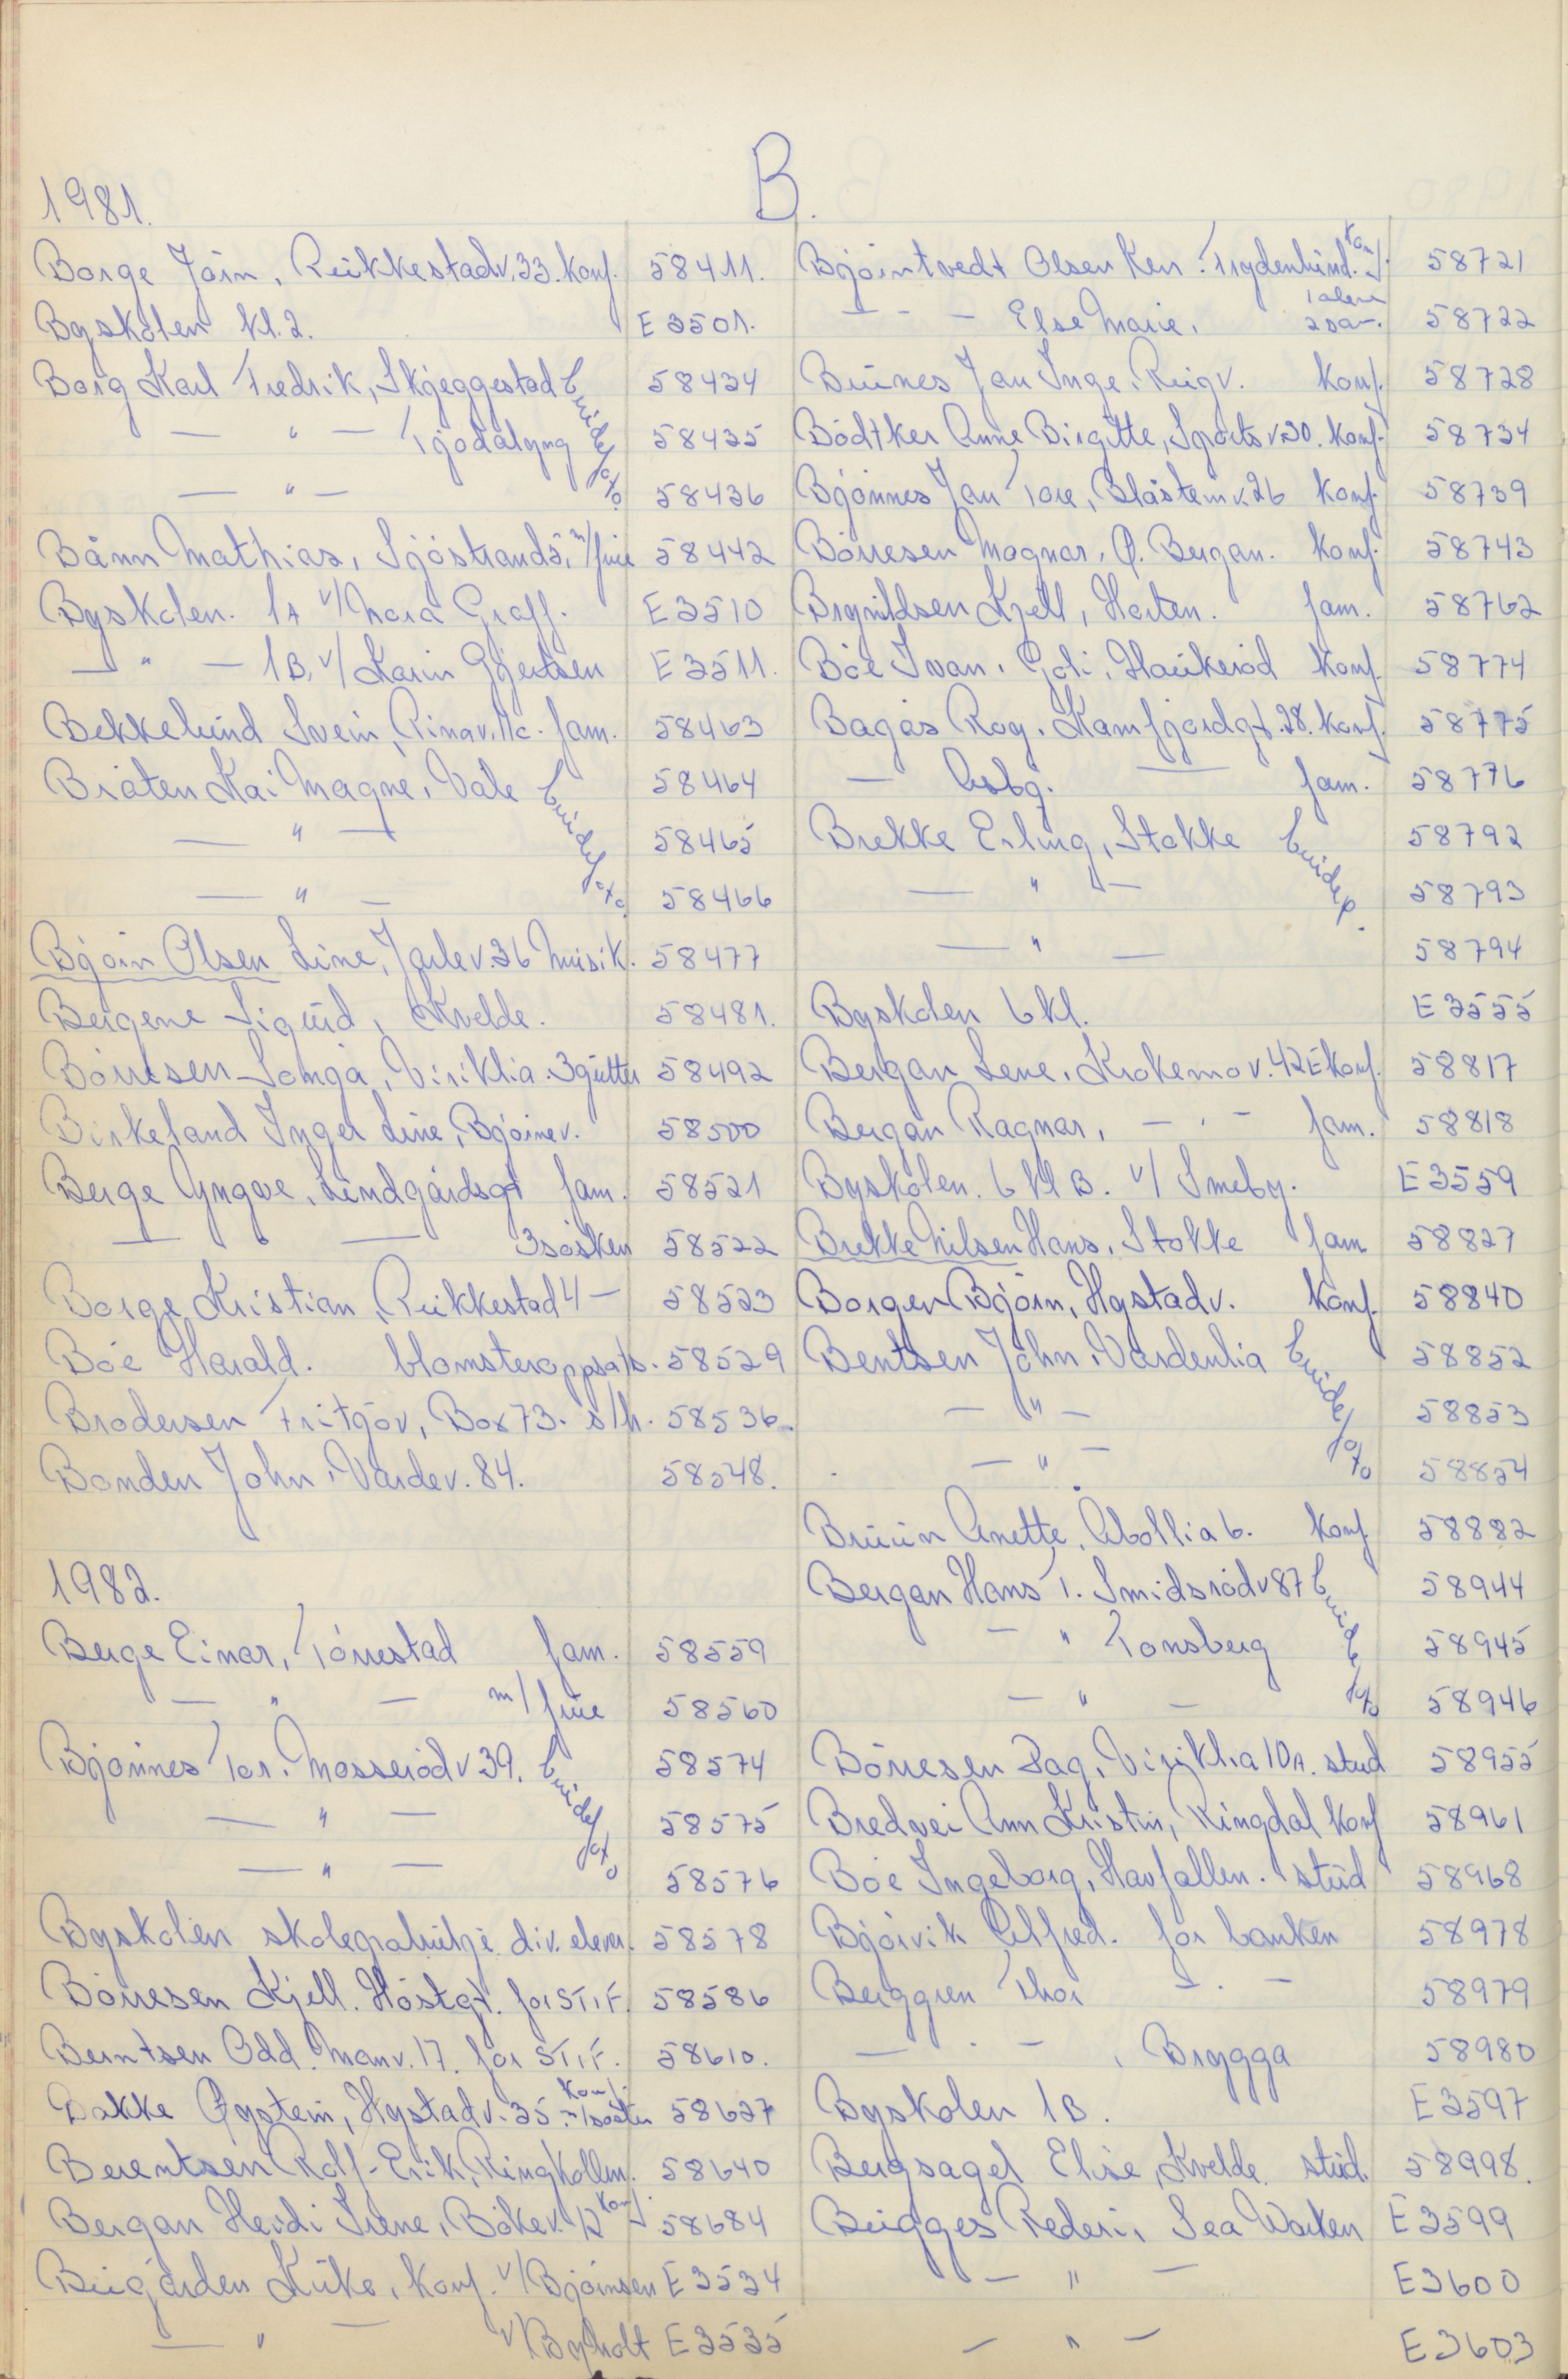 B.
1981.
Borge Jörn, Rukkestadv. 33. konf. 58411.
Byskolen kl. 2. E 3501.
Borg Karl Fredrik, Skjeggestad brudefoto. 58434
— " — Tjodalyng 58435
— " — 58436
Bånn Mathias, Sjöstrandö, m/frue 58442
Byskolen. 1A v/Nora Graff. E 3510
— " — 1B, v/Karin Gjertsen E 3511.
Bekkelund Svein, Rinav. 11c. fam. 58463
Bråten Kai Magne, Vale brudefoto. 58464
— " — 58465
— " — 58466
Björn Olsen Line, Jarlev. 36 musik. 58477
Bergene Sigurd, Kvelde. 58481.
Börresen Sonja, Viriklia. 3 gutter 58492
Birkeland Inger Line, Björnev. 58500
Berge Yngve, Lindgårdsgt fam. 58521
— " — 3 sösken 58522
Borge Kristian, Rukkestad 4 — 58523
Böe Harald. blomsteroppsats. 58529
Brodersen Fritjov, Box 73. s/h. 58536.
Bonden John, Vardev. 84. 58548.
1982.
Berge Einar, Törrestad fam. 58559
— " — m/frue 58560
Bjönnes Tor. Mosserödv 39. brudefoto 58574
— " — 58575
— " — 58576
Byskolen skolegalutje div. elever. 58578
Börresen Kjell. Höstgt. for ST.I.F. 58586
Berntsen Odd. Manv. 17. for ST.I.F. 58610.
Bakke Øystein, Hystadv. 35. konf. m/söster 58627
Berentsen Rolf-Erik, Ringkollen. 58640
Bergan Heidi Irene, Bökev. 12 konf. 58684
Bugården Kirke, konf. v/Björnsen E 3534
— " — v/Byholt E 3535
Björntvedt Olsen Ken. Frydenlund. konf. 58721
— - — Else Marie. 1 alene 2 sam. 58722
Brunes Jan Inge, Ringv. konf. 58728
Bödtker Anne Birgitte, Sportsv 30. konf. 58734
Bjönnes Jan Tore, Blåsteinv. 26 konf. 58739
Börresen Magnar, Ø. Bergan. konf. 58743
Brynildsen Kjell, Horten. fam. 58762
Böe Ivan. Goli, Haukeröd konf. 58774
Bagås Roy. Kamfjordgt. 28. konf. 58775
— Asbj. — fam. 58776
Brekke Erling, Stokke brudep. 58792
— " — 58793
— " — 58794
Byskolen 6 kl. E 3555
Bergan Lene. Krokemov. 42 E konf. 58817
Bergan Ragnar, — " — fam. 58818
Byskolen. 6 kl B. v/ Smeby. E 3559
Brekke Nilsen Hans, Stokke fam 58827
Borgen Björn, Hystadv. konf. 58840
Bentsen John, Vardenlia brudefoto 58852
— " — 58853
— " — 58854
Bruun Anette, Abollia 6. konf 58882
Bergan Hans T. Smidsrödv 87 brudefoto 58944
— " Tønsberg 58945
— " — 58946
Börresen Dag, Viriklia 10A. stud 58955
Bredvei Ann Kristin, Ringdal konf 58961
Böe Ingeborg, Havfallen. stud 58968
Björvik Alfred. for banken 58978
Berggren Thor — " — 58979
— " — , Brygga 58980
Byskolen 1B. E 3597
Bergsagel Elise, Kvelde stud. 58998.
Brugges Rederi, Sea Worker E 3599
— " — E 3600
— " — E 3603